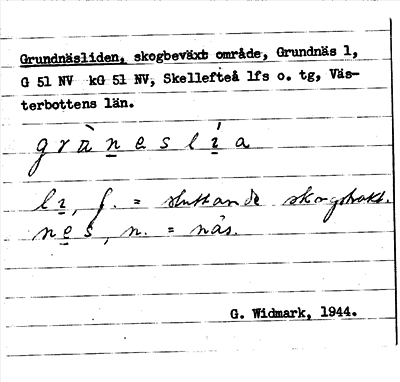 Grundnäsliden, skogbeväxt område, Grundnäs 1,
G 51 NV kG 51 NV, Skellefteå lfs o. tg, Väs-
terbottens län.
grǜn̲eslí̲a
li̲, f. = sluttande skogstrakt.
ne̲s, n. = näs.
G. Widmark, 1944.